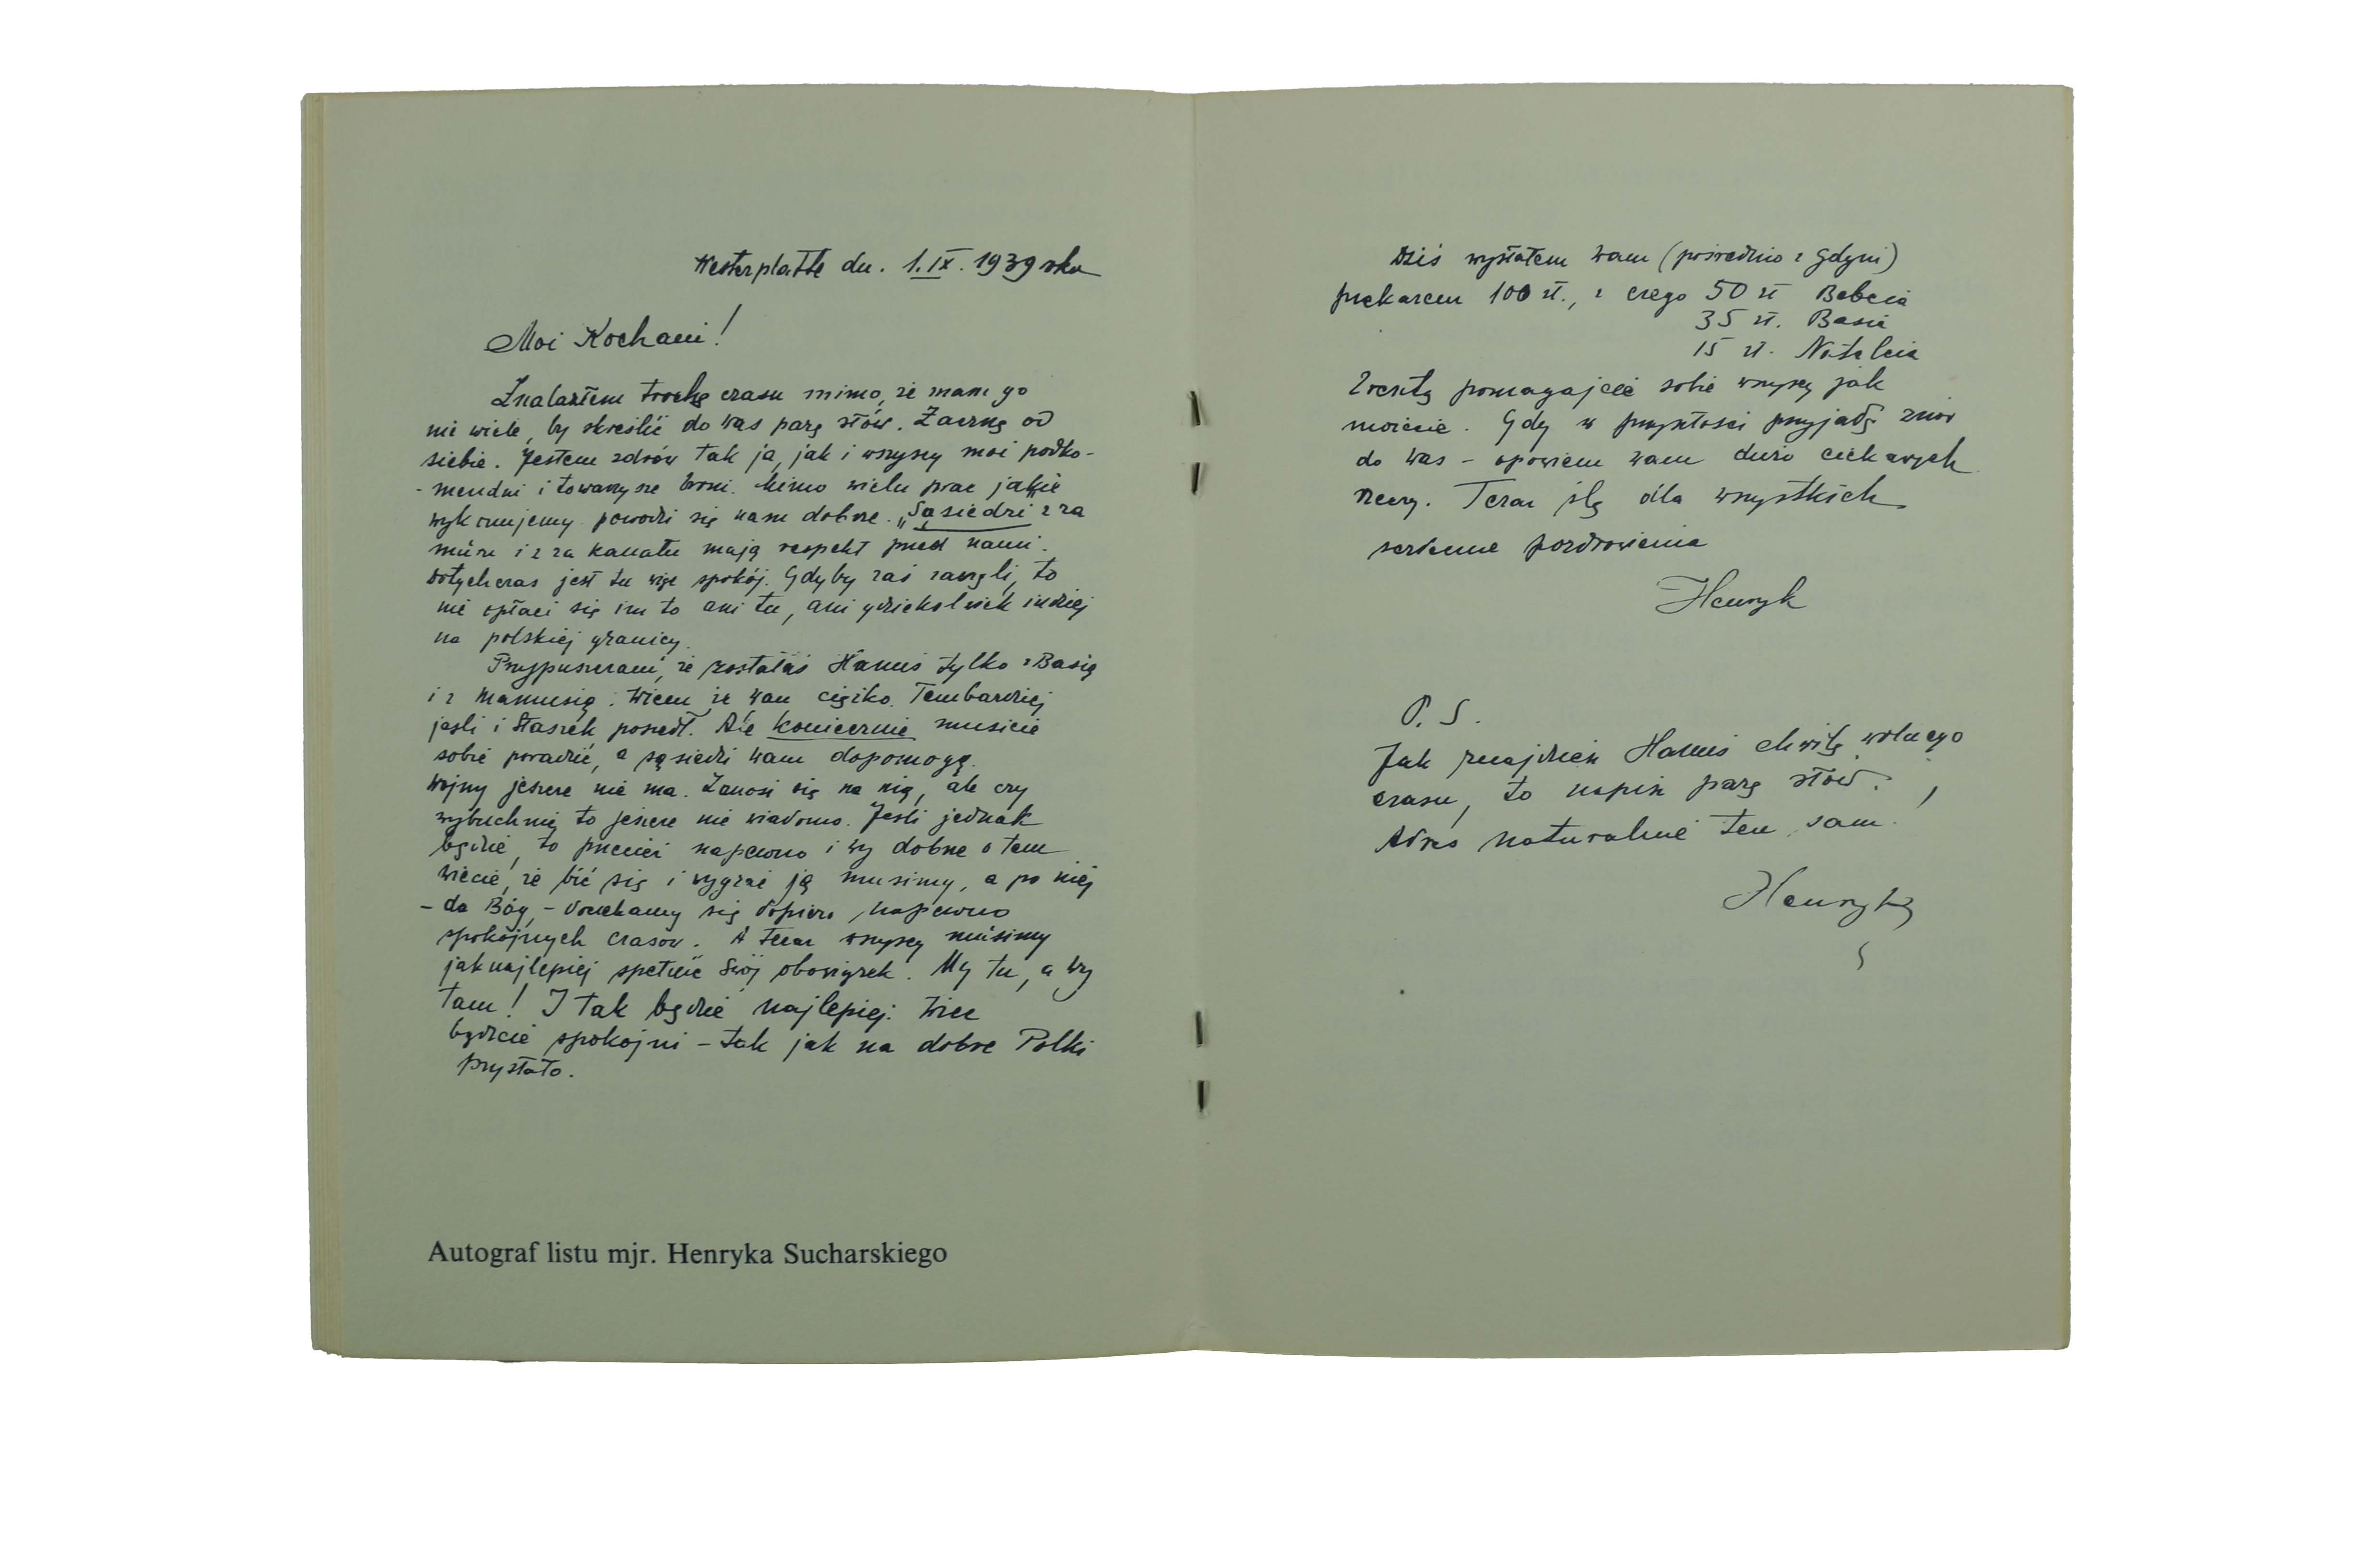 Westerplatte dn. 1.IX.1939 rku
Moi Kochani!
Znalazłem trochę czasu mimo, że mam go
nie wiele, by skreślić do Was parę słów. Zacznę od
siebie. Jestem zdrów tak ja, jak i wszyscy moi podko-
-mendni i towarzysze broni. Mimo wielu prac jakie
wykonujemy powodzi się nam dobrze. „Sąsiedzi z za
muru i z za kanału mają respekt przed nami.
Dotychczas jest tu więc spokój. Gdyby zaś zaczęli, to
nie opłaci się im to ani tu, ani gdziekolwiek indziej
na polskiej granicy.
Przypuszczam, że zostałaś Hanuś tylko z Basią
i z Mamusią. Wiem że Wam ciężko. Tembardziej
jeśli i Staszek poszedł. Ale koniecznie musicie
sobie poradzić, a sąsiedzi Wam dopomogą.
Wojny jeszcze nie ma. Zanosi się na nią, ale czy
wybuchnie to jeszcze nie wiadomo. Jeśli jednak
będzie, to przecież napewno i wy dobrze o tem
wiecie, że bić się i wygrać ją musimy, a po niej
- da Bóg, - doczekamy się dopiero napewno
spokojnych czasów. A teraz wszyscy musimy
jaknajlepiej spełnić swój obowiązek. My tu, a Wy
tam! I tak będzie najlepiej. Więc
bądźcie spokojni - tak jak na dobre Polki
przystało.
Autograf listu mjr. Henryka Sucharskiego
Dziś wysłałem Wam (pośrednio z Gdyni)
przekazem 100 zł., z czego 50 zł Babcia
35 zł. Basia
15 zł. Natalcia
Zresztą pomagajcie sobie wszyscy jak
możecie. Gdy w przyszłości przyjadę znów
do Was - opowiem Wam dużo ciekawych
rzeczy. Teraz ślę dla wszystkich
serdeczne pozdrowienia
Henryk
P.S.
Jak znajdziesz Hanuś chwilę wolnego
czasu, to napisz parę słów.
Adres naturalnie ten sam.
Henryk